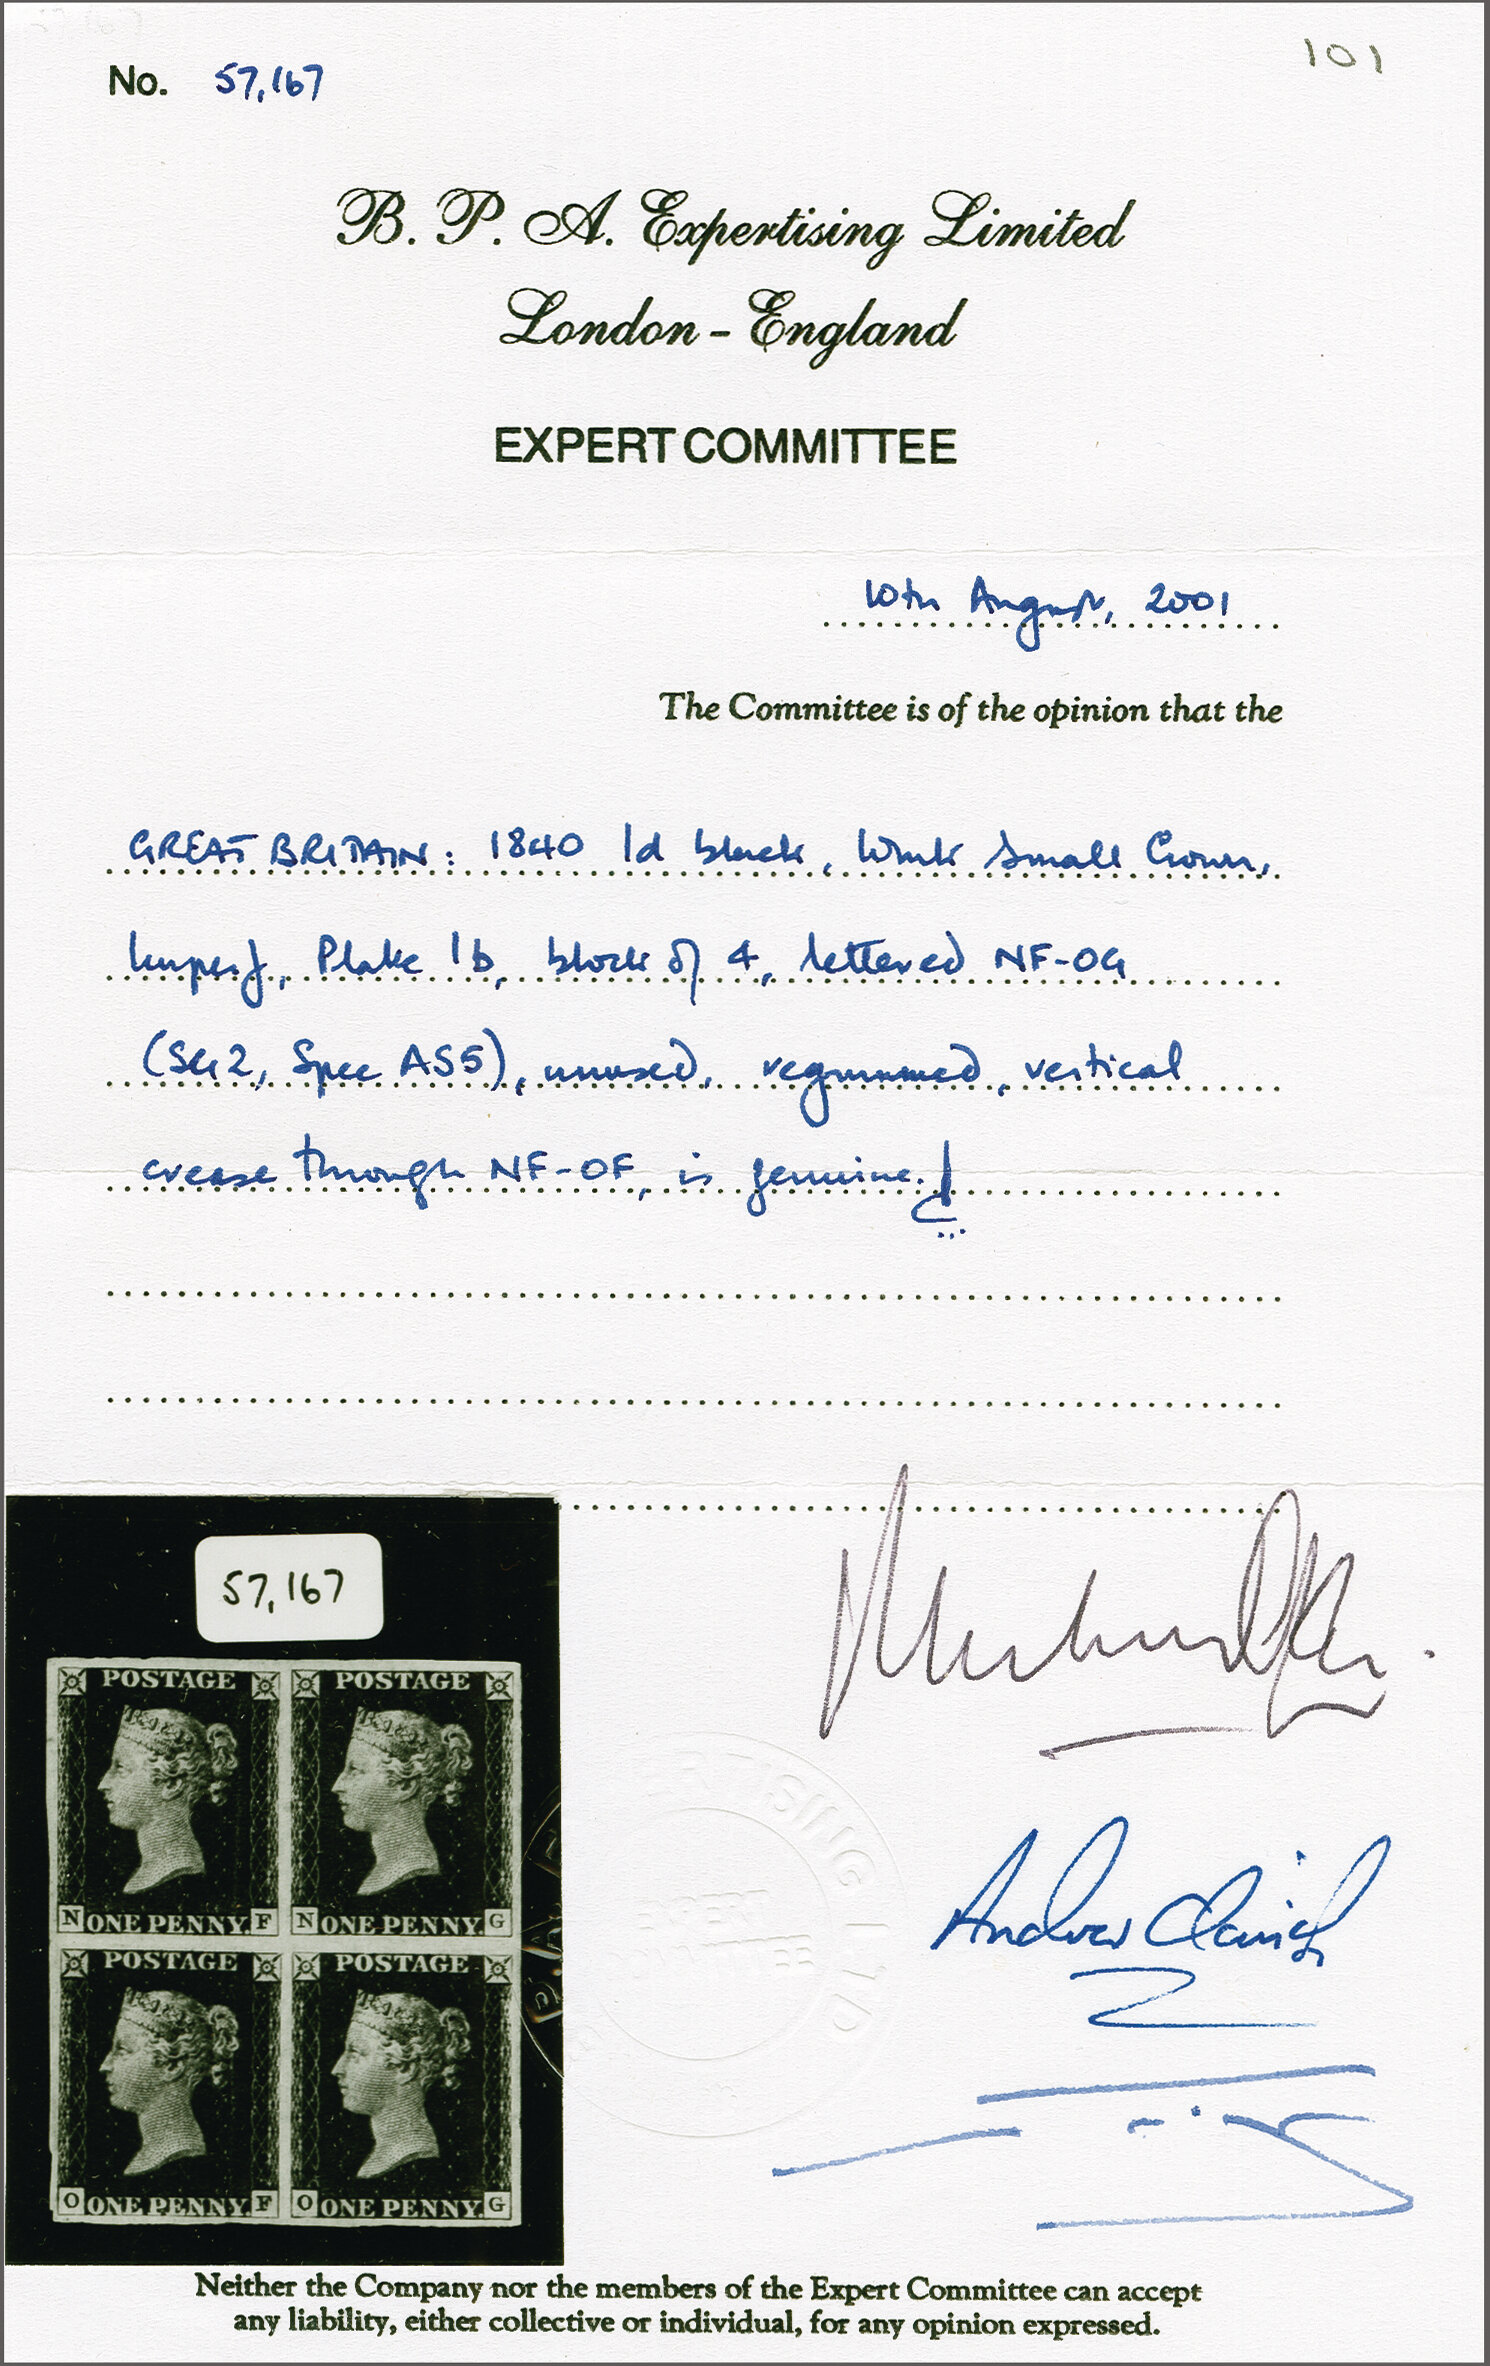 101
No. 57,167
B. P. A. Expertising Limited
London - England
EXPERT COMMITTEE
10th August, 2001
The Committee is of the opinion that the
GREAT BRITAIN: 1840 1d black, Wmk Small Crown,
Imperf, Plate 1b, block of 4, lettered NF-OG
(SG2, Spec AS5), unused, regummed, vertical
crease through NF-OF, is genuine.
57,167
POSTAGE POSTAGE
N ONE PENNY. F N ONE PENNY. G
POSTAGE POSTAGE
O ONE PENNY. F O ONE PENNY. G
Neither the Company nor the members of the Expert Committee can accept
any liability, either collective or individual, for any opinion expressed.